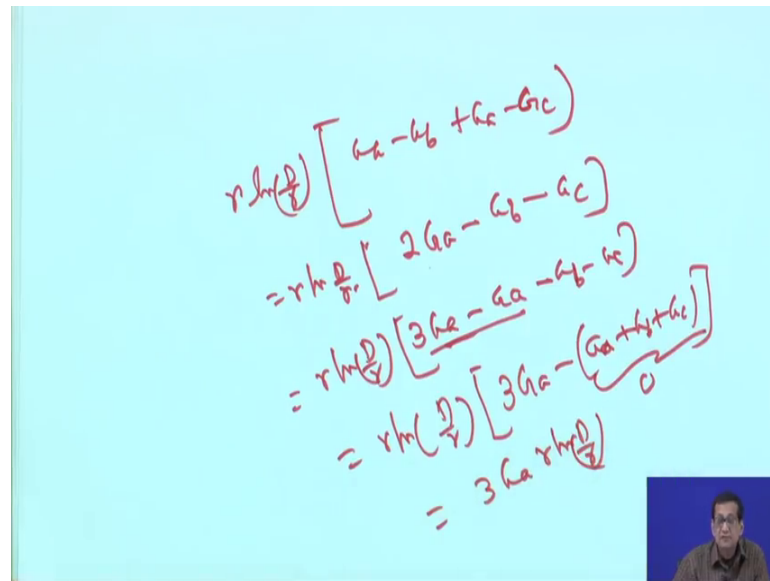 r ln(D/r) [ qa - qb + qa - qc ]
= r ln D/r [ 2qa - qb - qc ]
= r ln(D/r) [ 3qa - qa - qb - qc ]
= r ln(D/r) [ 3qa - (qa + qb + qc) ]
0
= 3qa r ln(D/r)